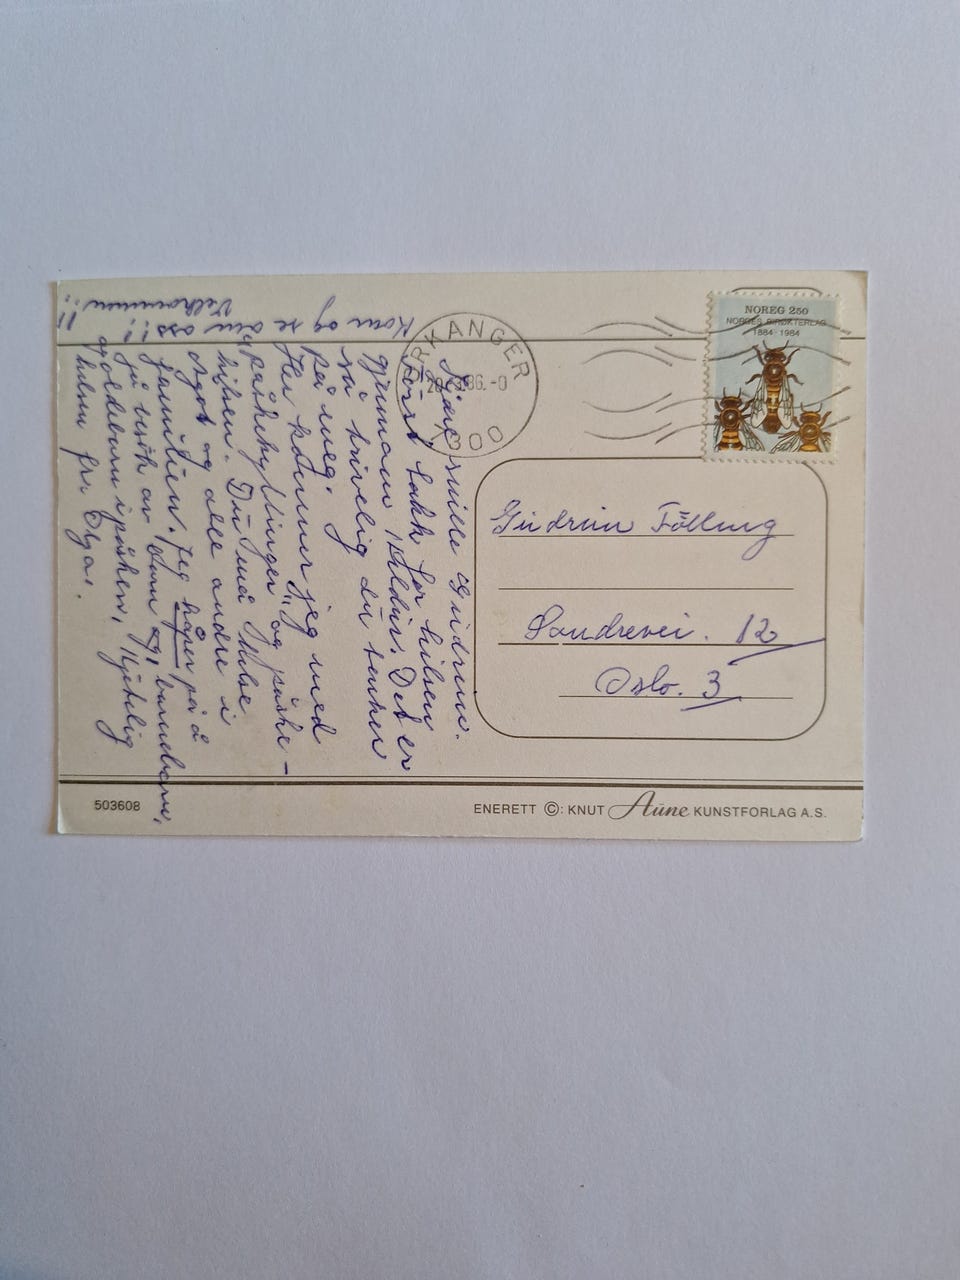 Kjære snille Gudrun.
Først takk for hilsen
gjennom Halduis. Det er
så trivelig du tenker
på meg.
Her kommer jeg med
"påskekyllinger" og påske-
hilsen. Du må hilse
og alle andre i
familien. Jeg håper på å
få besök av barn og barnebarn,
og oldebarn i påsken, Kjærlig
hilsen fra Olga.
Kom og se din oss!!
Velkommen!!
ORKANGER
20.-3.86.-0
7300
NOREG 250
NORGES BIRØKTERLAG
1884-1984
Gudrun Fölling
Sandrevei. 12
Oslo. 3
503608
ENERETT ©: KNUT Aune KUNSTFORLAG A.S.